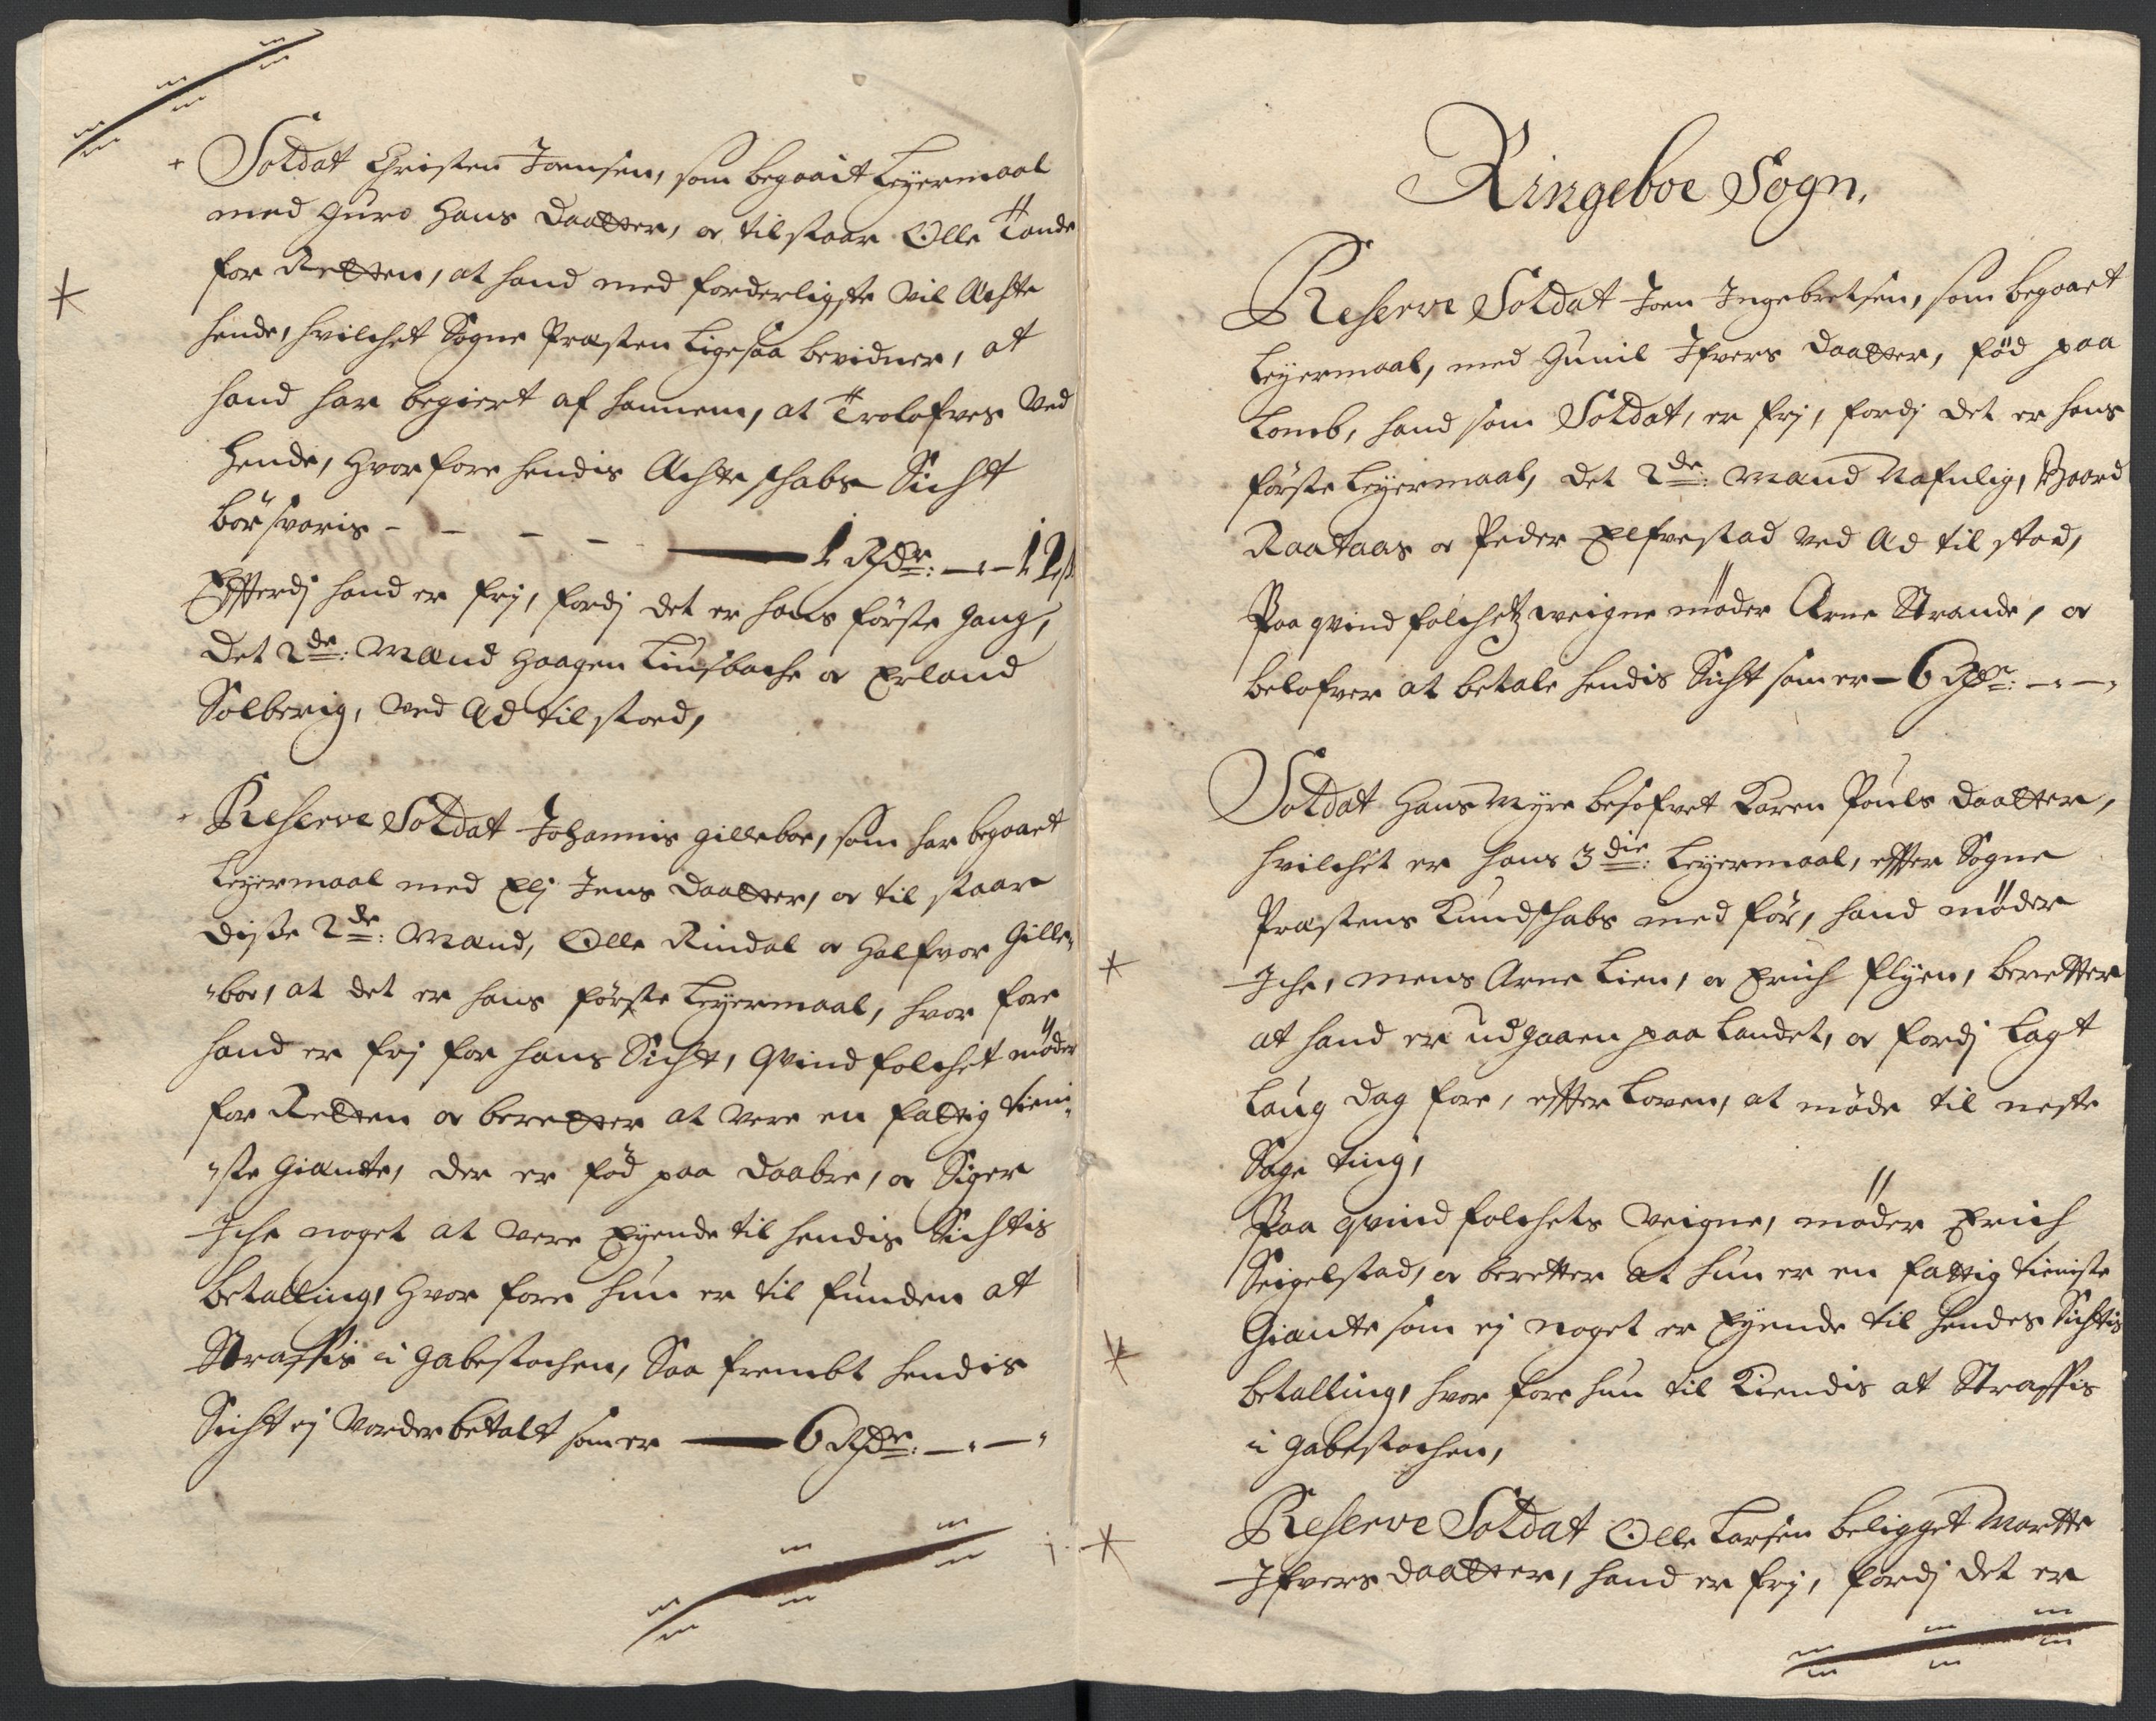 Soldat Christen Joensen, som begaait Leyermaal
med Guro Hans Daatter, og tilstaar Olle Tande
for Retten, at hand med forderligste vil Ächte
hende, hvilchet Sogne Præsten ligesaa bevidner, at
hand har begiert af hannem, at Trolofves ved
hende, hvorfore hendis Ächteschabs Sicht
bör svaris - - - - 1 Rdr: - - 12 s
Efterdj hand er frj, fordj det er hans förste gang,
det 2de: Mænd Haagen Linsbache og Erland
Solberig, ved Æd tilstoed,
Reserve Soldat Johannis Gilleboe, som har begaaet
Leyermaal med Elj Jens Daatter, og til staar
disse 2de: Mænd, Olle Rindal og Halfvor Gille-
boe, at det er hans förste Leyermaal, hvor fore
hand er frj for hans Sicht, qvindfolchet möder
for Retten og beretter at vere en fattig tieni-
ste Giænte, der er föd paa Daabre, og Siger
Iche noget at vere Eyende til hendis Sichtis
betalling, hvor fore hun er til funden at
Straffis i gabestochen, Saa frembt hendis
Sicht ej vorder betalt som er — 6 Rdr: - -
Ringeboe Sogn.
Reserve Soldat Joen Ingebretsen, som begaaet
Leyermaal, med Gunil Ifvers daatter, föd paa
Lomb, hand som Soldat, er frj, fordj det er hans
förste Leyermaal, det 2de: Mænd Nafnlig, Baard
Raataas og Peder Elfvestad ved Æd til stod,
Paa qvindfolchetz weigne möder Arne Strande, og
belofver at betale hendis Sicht som er - 6 Rdr: - -
Soldat Hans Myre besofvet Karen Pouls daatter,
hvilchet er hans 3die: Leyermaal, effter Sogne
Præstens Kundschabs med för, hand möder
Iche, mens Arne Lien, og Erich Flyen, beretter
at hand er udgaaen paa Landet, og fordj lagt
Laug dag fore, effter Loven, at möde til neste
Sage ting,
Paa qvindfolchets veigne, möder Erich
Seigelstad, og beretter at hun er en fattig tieniste
Giænte som ej noget er Eyende til hendes Sichtis
betalling, hvor fore hun til Kiendis at Straffis
i gabestochen,
Reserve Soldat Olle Larsen beligget Marte
Ifvers daatter, hand er frj, fordj det er